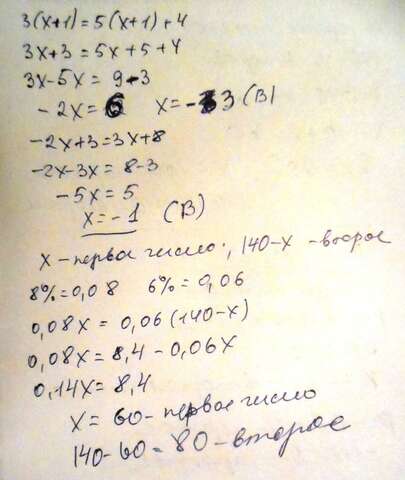 3(x+1)=5(x+1)+4
3x+3=5x+5+4
3x-5x=9-3
-2x=6 x=-3 (В)
-2x+3=3x+8
-2x-3x=8-3
-5x=5
x=-1 (В)
x-первое число; 140-x -второе
8%=0,08 6%=0,06
0,08x=0,06(140-x)
0,08x=8,4-0,06x
0,14x=8,4
x=60-первое число
140-60=80-второе